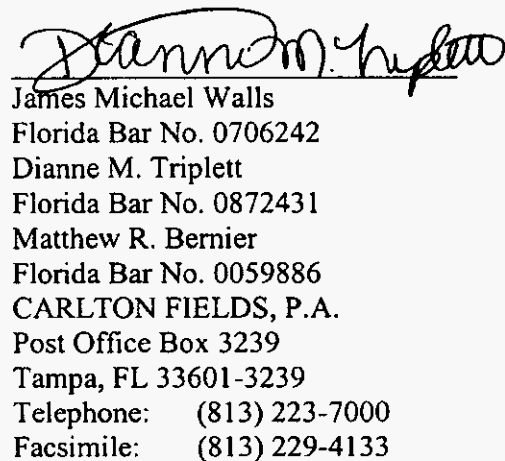 Dianne M. Triplett
James Michael Walls
Florida Bar No. 0706242
Dianne M. Triplett
Florida Bar No. 0872431
Matthew R. Bernier
Florida Bar No. 0059886
CARLTON FIELDS, P.A.
Post Office Box 3239
Tampa, FL 33601-3239
Telephone: (813) 223-7000
Facsimile: (813) 229-4133